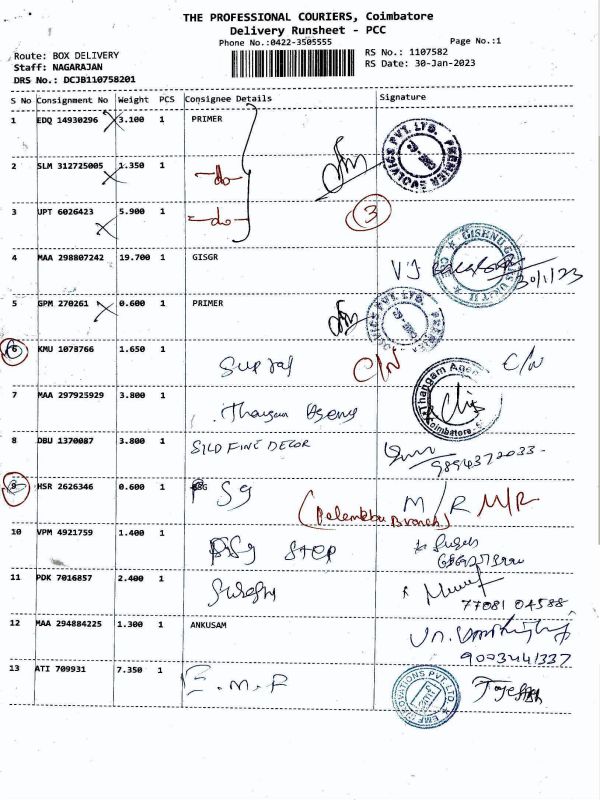 THE PROFESSIONAL COURIERS, Coimbatore
Delivery Runsheet - PCC
Phone No.:0422-3505555
Page No.:1
Route: BOX DELIVERY
RS No.: 1107582
Staff: NAGARAJAN
RS Date: 30-Jan-2023
DRS No.: DCJB110758201
S No Consignment No Weight PCS Consignee Details Signature
1 EDQ 14930296 3.100 1 PRIMER
PREMIER EVOLVICS PVT. LTD.
2 SLM 312725005 1.350 1 -do-
3 UPT 6026423 5.900 1 -do- 3
4 MAA 298807242 19.700 1 GISGR
30/1/23
5 GPM 270261 0.600 1 PRIMER
6 KMU 1078766 1.650 1 C/N C/N
7 MAA 297925929 3.800 1
Thangam Agen
Coimbatore
8 DBU 1370087 3.800 1 SILD FINE DECOR
9894372033
9 HSR 2626346 0.600 1 PSG M/R M/R
10 VPM 4921759 1.400 1 PSG STEP
11 PDK 7016857 2.400 1
77081 04588
12 MAA 294884225 1.300 1 ANKUSAM
9003441337
13 ATI 709931 7.350 1 E.M.F
EMF INNOVATIONS PVT. LTD.